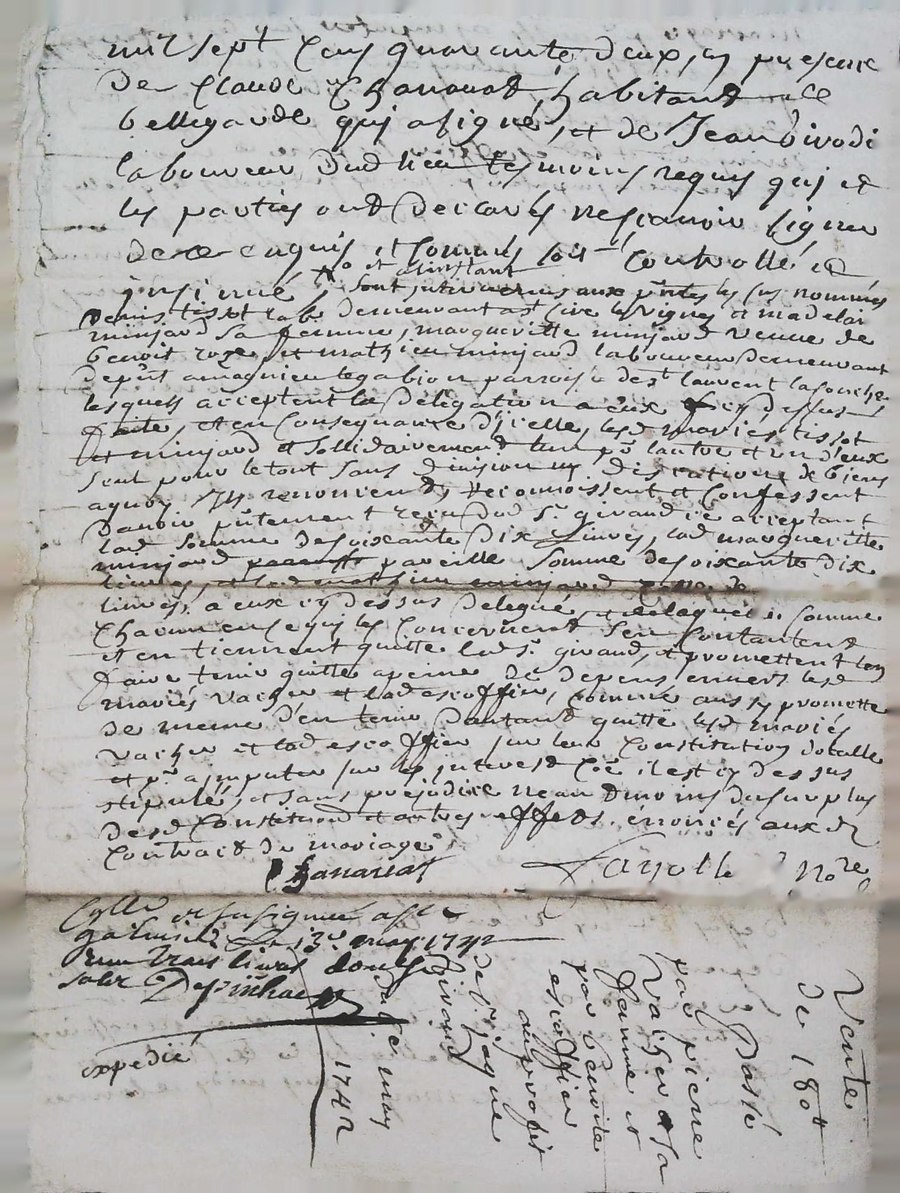 mil sept Cens quarante deux, en presence
De Claude Chanavat, habitant de
bellegarde qui a signé, et de Jean
laboureur Dud lieu tesmoins requis qui et
les parties ont Declarés ne scavoir signer
de ce enquis et sommés soit Controllé et
insinué, et a linstant
sont intervenus aux pntes les sus nommés
Denis tissot demeurant a st Cire les Vignes et madelai
minjard Sa femme, margueritte minjard Veuve de
benoit roze, et mathieu minjard laboureur Demeurant
Depnt a magnieu le gabion parroisse de st laurent
lesquels acceptent la Delegation a eux cy Dessus
faite, et en Consequance D'icelle, lesd mariés tissot
et minjard et sollidairement lun pr lautre et un d'eux
seul pour le tout sans Division ny Discution de biens
aquoy Ils renoncent, reconnoissent et Confessent
Davoir pntement reçu Dud Sr girand ce acceptant
lad somme de soixante Dix Livres, lad margueritte
minjard pareille Somme de soixante Dix
livres, et led mathieu minjard
livres, a eux cy dessus Delegué, Comme
Chacun en ce qui les Concernent, Sen Contantent
et en tiennent quitte led Sr girand, et promettent len
faire tenir quitte a peine De Depens envers lesd
mariés Vacher et lad escoffier, Comme aussy promette
de meme D'en tenir Dautant quitte lesd mariés
Vacher et lad escoffier sur leur Constitution dotalle
et pr a imputer sur les interest Coe il est cy dessus
stipulé, et sans prejudice neandmoins du surplus
Desd Constitutions et autres effets enoncés aux d
Contract de mariage
Chanavat
Nore
Cyllé et Insinué a st
galmier Le 13e may 1742
reçu trois livres douze
solz
expedié
Vente
de 180 tt
Passé
par pierre
Vacher et sa
femme et
par benoite
escoffier
au profit
de Sr jaque
Girand
may
1742